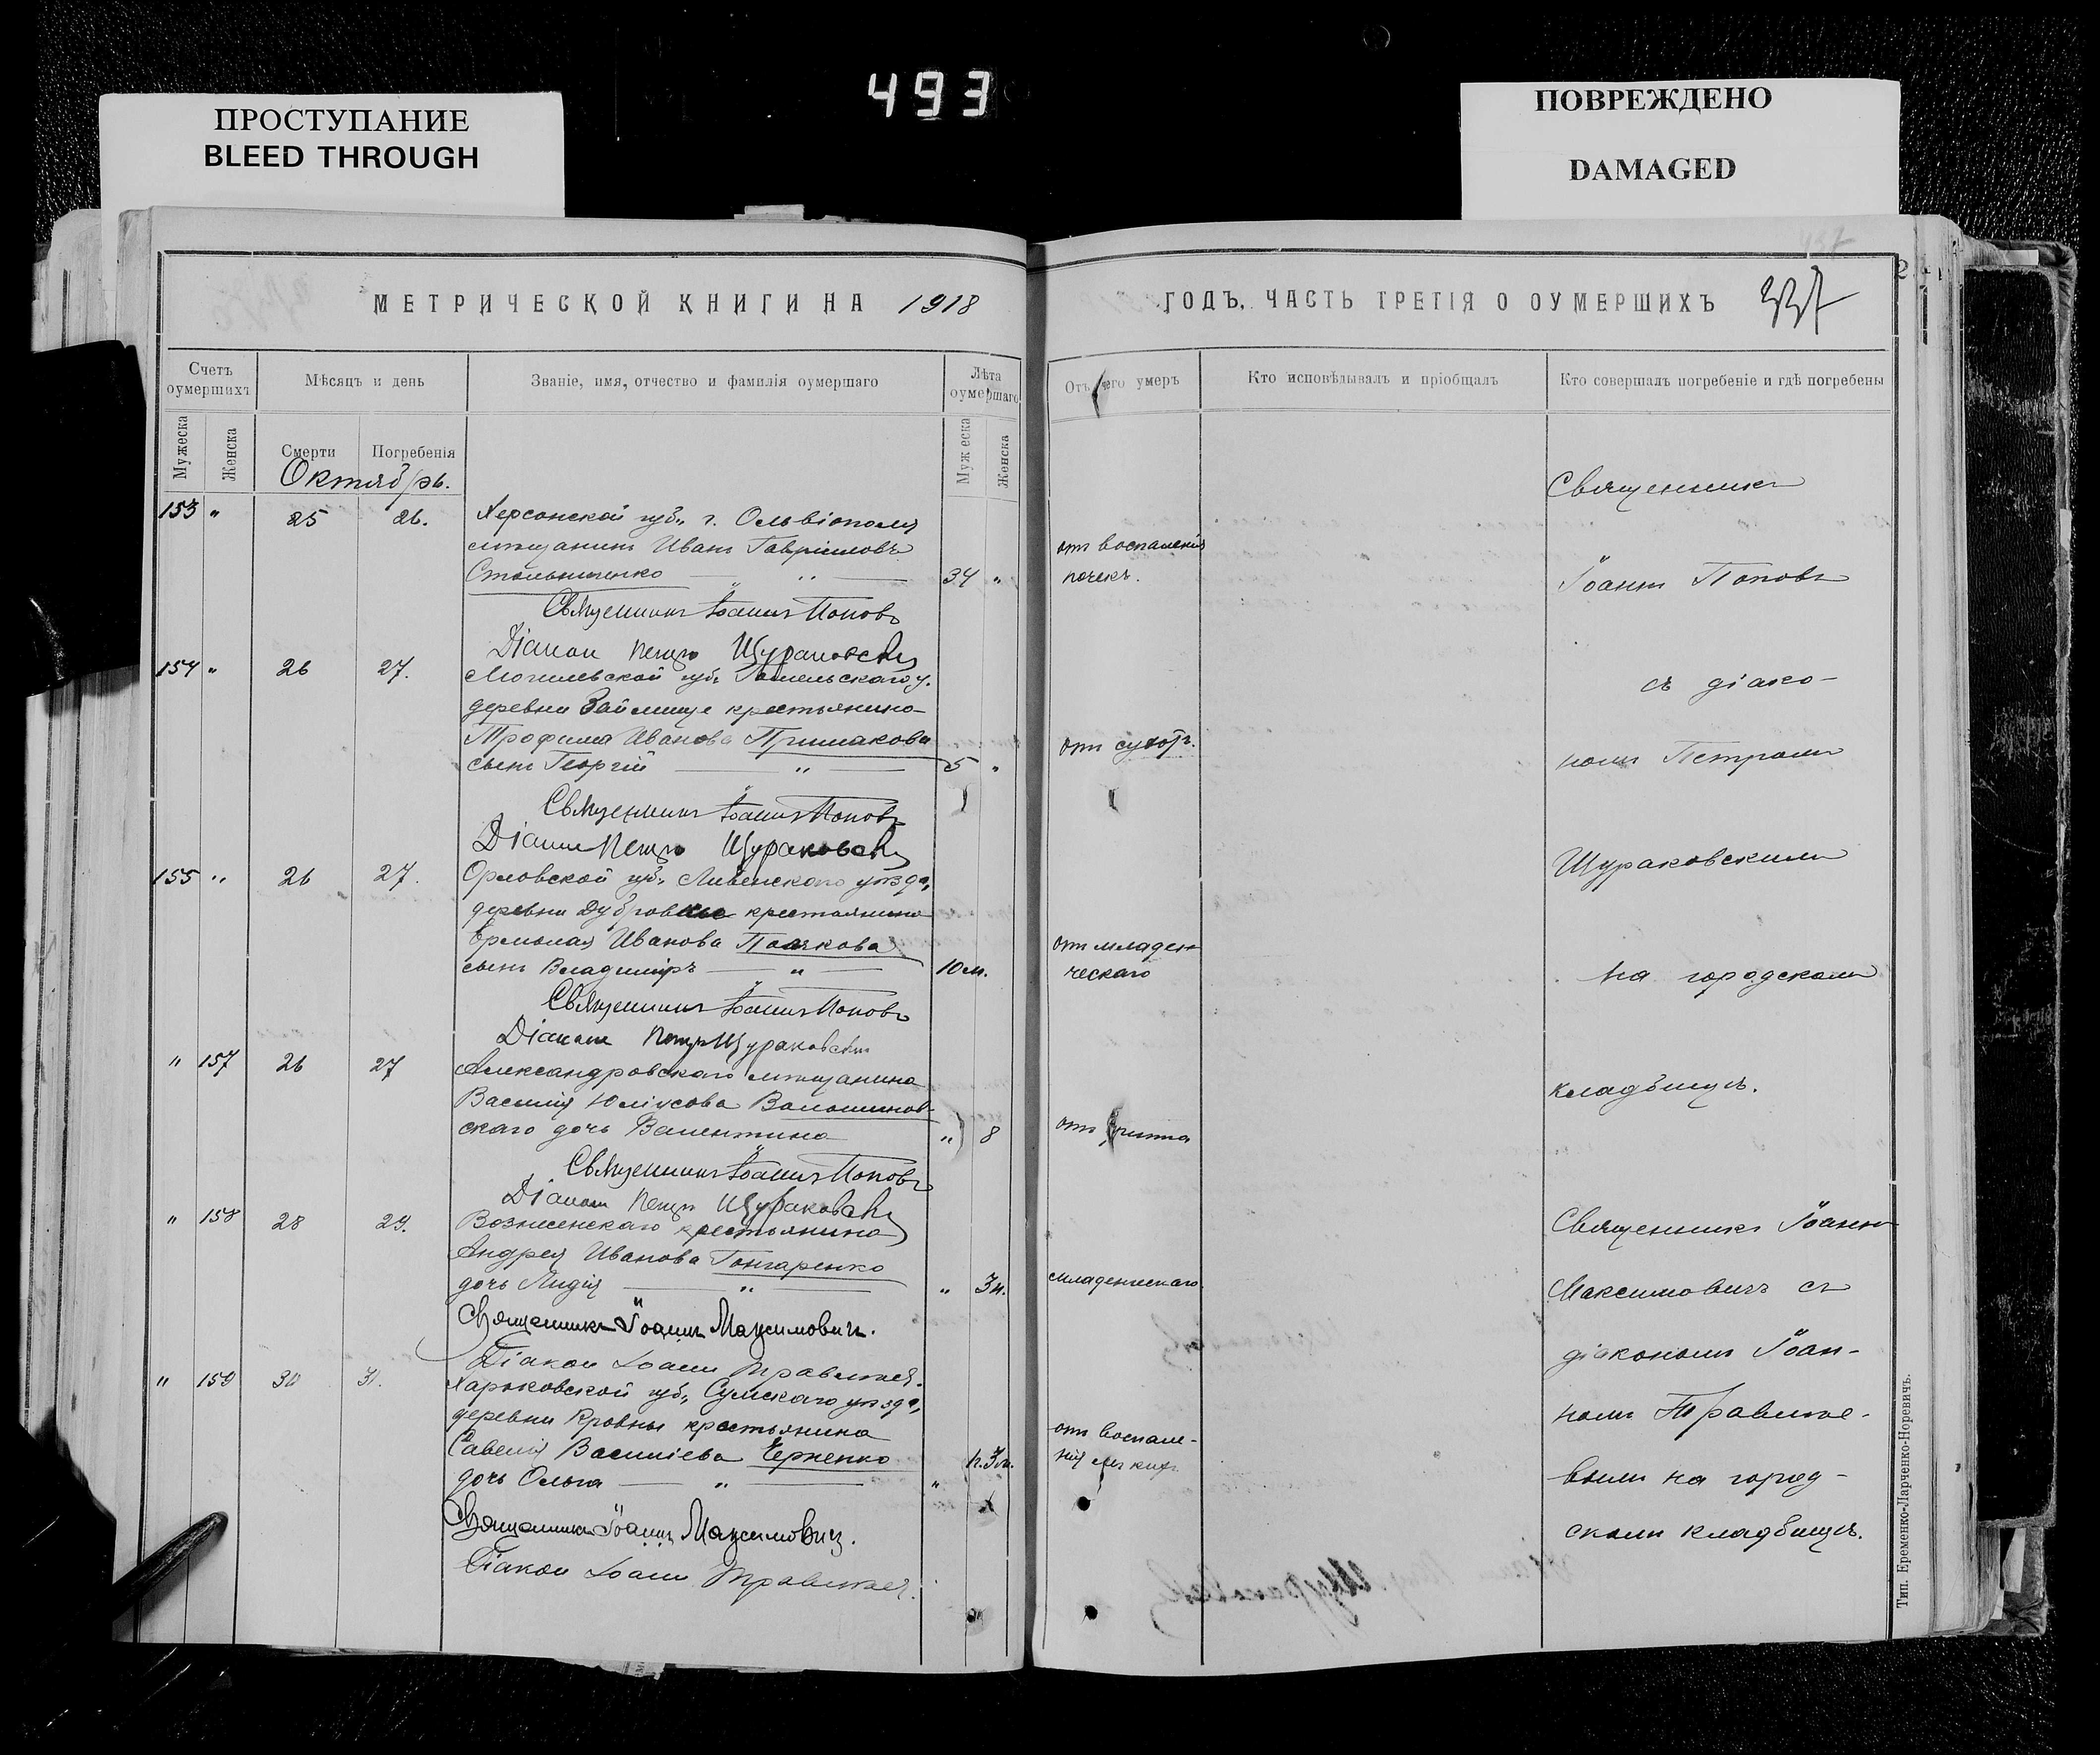 493
ПРОСТУПАНИЕ
BLEED THROUGH
ПОВРЕЖДЕНО
DAMAGED
МЕТРИЧЕСКОЙ КНИГИ НА 1918
Счетъ оумершихъ
Мѣсяцъ и день
Званіе, имя, отчество и фамилія оумершаго
Лѣта оумершаго
Мужеска
Женска
Смерти
Погребенія
Мужеска
Женска
Октябрь.
153 " 25 26. Херсонской губ. г. Ольвіополя
мѣщанинъ Иванъ Гавріиловъ
34 "
Священникъ Іоаннъ Поповъ
Діаконъ Петръ Щураковскій
154 " 26 27. Могилевской губ. Гомельскаго у.
деревни Займище крестьянина
Трофима Иванова Примакова
сынъ Георгій " 5 "
Священникъ Іоаннъ Поповъ
Діаконъ Петръ Щураковскій
155 " 26 27. Орловской губ. Ливенскаго уѣзда,
деревни крестьянина
Ермолая Иванова Полякова
сынъ Владиміръ " 10 м.
Священникъ Іоаннъ Поповъ
Діаконъ Петръ Щураковскій
" 157 26 27 Александровскаго мѣщанина
Василія Юліусова Валашинов-
скаго дочь Валентина " 8
Священникъ Іоаннъ Поповъ
Діаконъ Петръ Щураковскій
" 158 28 29. Вознесенскаго крестьянина
Андрея Иванова Гончаренко
дочь Лидія " " 3 н.
Священникъ Іоаннъ Максимовичъ.
Діаконъ Іоаннъ
" 159 30 31. Харьковской губ. Сумскаго уѣзда,
деревни крестьянина
Савелія Василіева
дочь Ольга " "
Священникъ Іоаннъ Максимовичъ.
Діаконъ Іоаннъ
ГОДЪ, ЧАСТЬ ТРЕТІЯ О ОУМЕРШИХЪ
Отъ чего умеръ
Кто исповѣдывалъ и пріобщалъ
Кто совершалъ погребеніе и гдѣ погребены
отъ воспаленія
почекъ.
отъ сухот.
отъ младен
ческаго
отъ гриппа
младенческаго.
отъ воспале-
нія легкихъ
Священникъ
Іоаннъ Поповъ
съ діако-
номъ Петромъ
Щураковскимъ
на городскомъ
кладбищѣ.
Священникъ Іоаннъ
Максимовичъ съ
діакономъ Іоан-
номъ
вымъ на город-
скомъ кладбищѣ.
Тип. Еременко-Ларченко-Норевичъ.